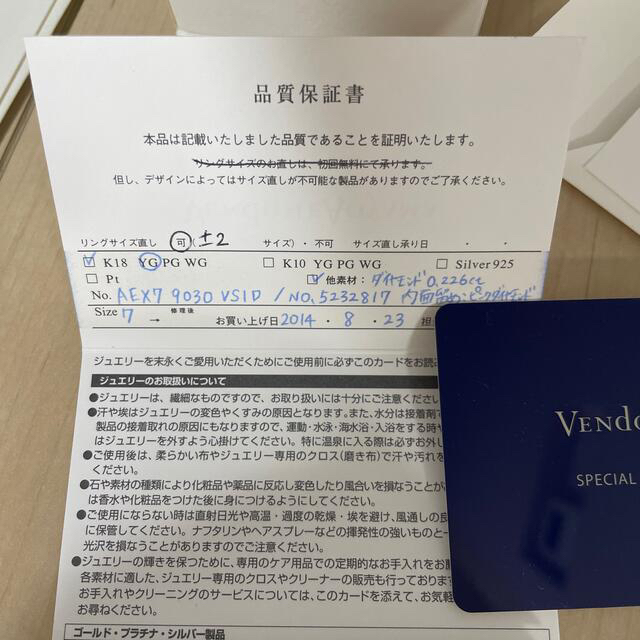 品質保証書
本品は記載いたしました品質であることを証明いたします。
リングサイズのお直しは、初回無料にて承ります。
但し、デザインによってはサイズ直しが不可能な製品がありますのでご了承ください。
リングサイズ直し 可(±2 サイズ)・不可 サイズ直し承り日 ・ ・
K18 YG PG WG K10 YG PG WG Silver925
Pt 他素材：ダイヤモンド0.226ct
No. AEX7 9030 VSID / No, 5232817 内面留め:ピンクダイヤモンド
Size 7 → 修理後 お買い上げ日 2014 ・ 8 ・ 23 担
ジュエリーを末永くご愛用いただくためにご使用前に必ずこのカードをお読
ジュエリーのお取扱いについて
●ジュエリーは、繊細なものですので、お取り扱いには十分にご注意ください
●汗や埃はジュエリーの変色やくすみの原因となります。また、水分は接着剤で
製品の接着取れの原因にもなりますので、運動・水泳・海水浴・入浴をする時や
はジュエリーを外すよう心掛けてください。特に温泉に入る際は必ずお外し
●ご使用後は、柔らかい布やジュエリー専用のクロス(磨き布)で汗や汚れを
ください。
●石や素材の種類により化粧品や薬品に反応し変色したり風合いを損なうことが
は香水や化粧品をつけた後に身につけるようにしてください。
●ご使用にならない時は直射日光や高温・過度の乾燥・埃を避け、風通しの良
に保管してください。ナフタリンやヘアスプレーなどの揮発性の強いものと一
光沢を損なうことがありますのでご注意ください。
●ジュエリーの輝きを保つために、専用のケア用品での定期的なお手入れをお
各素材に適した、ジュエリー専用のクロスやクリーナーの販売も行っております
お手入れやクリーニングのサービスについては、このカードを添えて、お気軽
お尋ねください。
ゴールド・プラチナ・シルバー製品
VENDO
SPECIAL